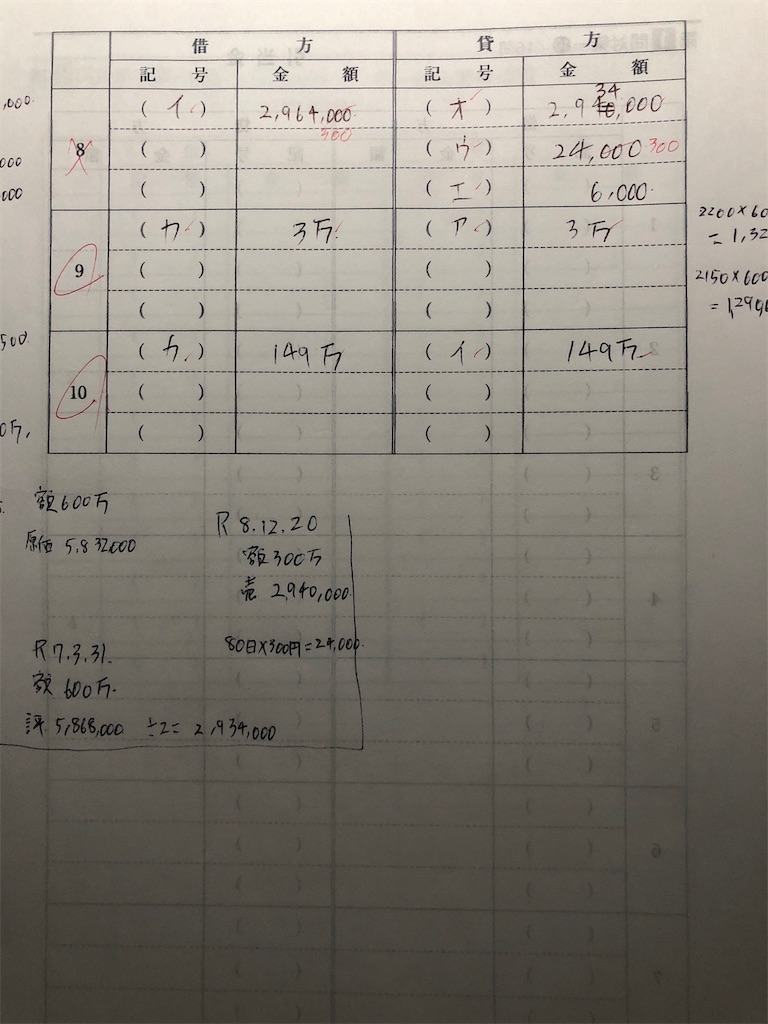 借 方 貸 方
記 号 金 額 記 号 金 額
8 (イ) 2,964,000 300 (オ) 2,9 34 ,000
( ) (ウ) 24,000 300
( ) (エ) 6,000
9 (カ) 3万 (ア) 3万
( ) ( )
( ) ( )
10 (カ) 149万 (イ) 149万
( ) ( )
( ) ( )
,000
000
000
500
0万,
2200×60
= 1,32
2150×600
額600万
原価 5,832,000
R 8.12.20
額300万
売 2,940,000
80日×300円=24,000
R7.3.31.
額 600万.
評 5,868,000 ÷2= 2,934,000